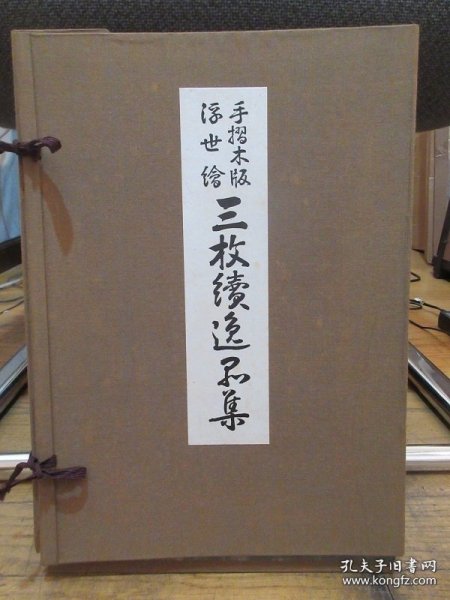 手摺木版
浮世繪
三枚續逸品集
孔夫子旧书网
www.kongfz.com